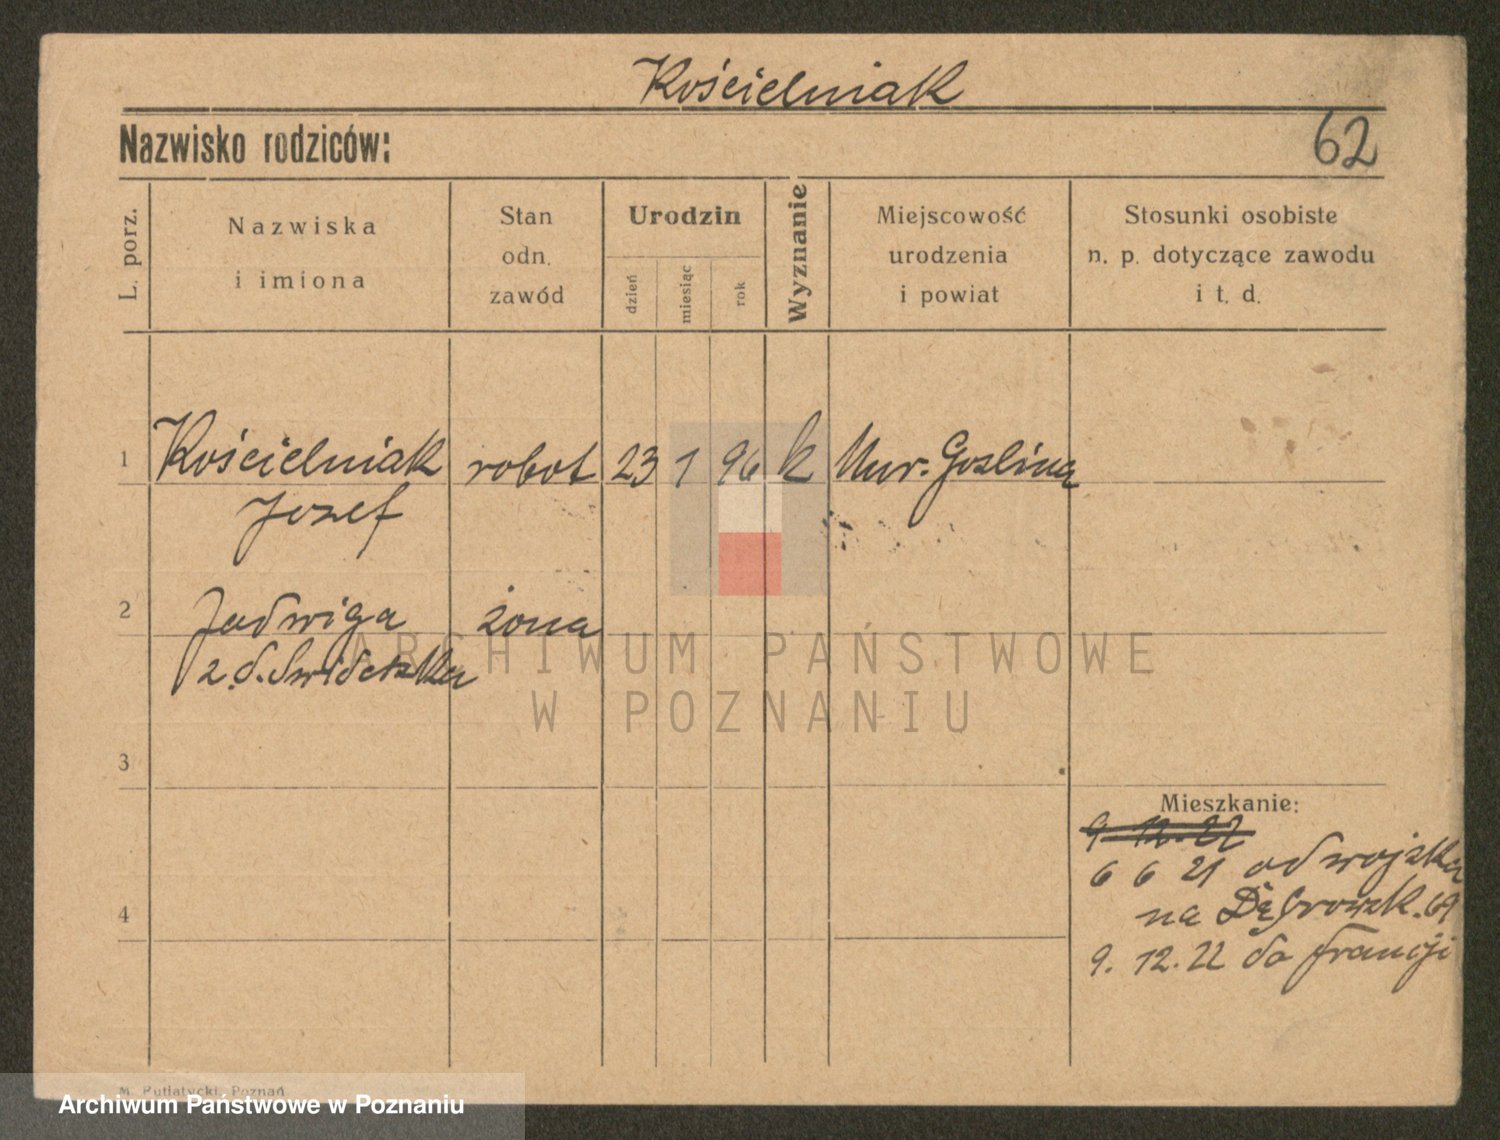 Kościelniak
Nazwisko rodziców:
62
L. porz.
Nazwiska
i imiona
Stan
odn.
zawód
Urodzin
dzień
miesiąc
rok
Wyznanie
Miejscowość
urodzenia
i powiat
Stosunki osobiste
n. p. dotyczące zawodu
i t. d.
1 Kościelniak robot 23 1 96 k Mur. Goslina
Jozef
2 Jadwiga żona
z d. Swiderska
ARCHIWUM PAŃSTWOWE
W POZNANIU
3
Mieszkanie:
9 12.22
6 6 21 od wojska
4
na Dąbrowsk. 69
9. 12.22 do Francji
M. Putiatycki, Poznań
Archiwum Państwowe w Poznaniu